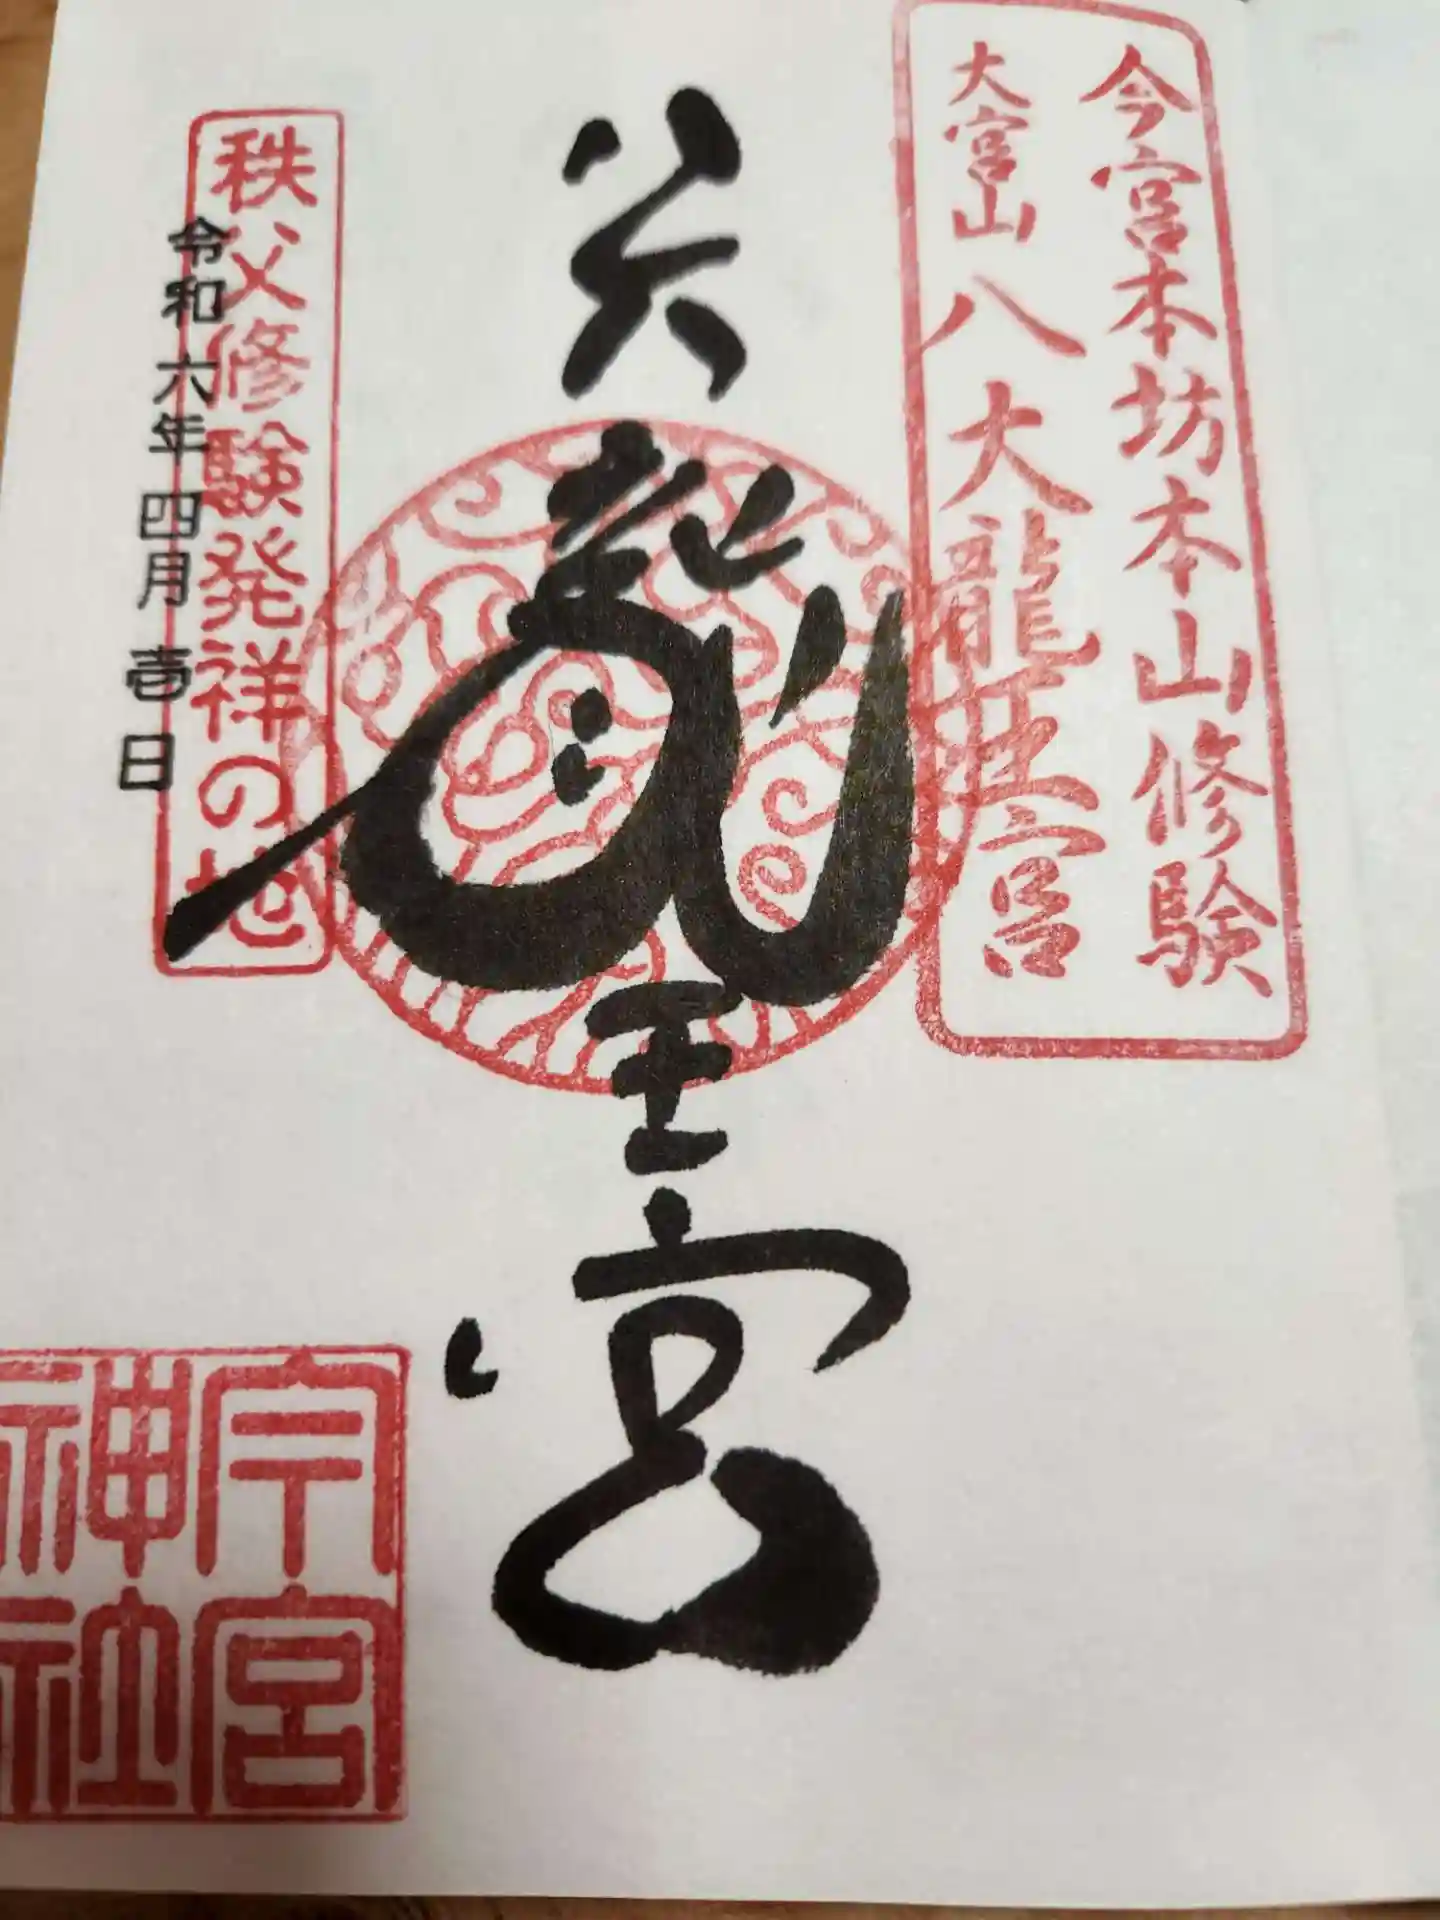 今宮本坊本山修験
大宮山八大龍王宮
八大龍王宮
秩父修験発祥の地
令和六年四月壱日
今宮神社